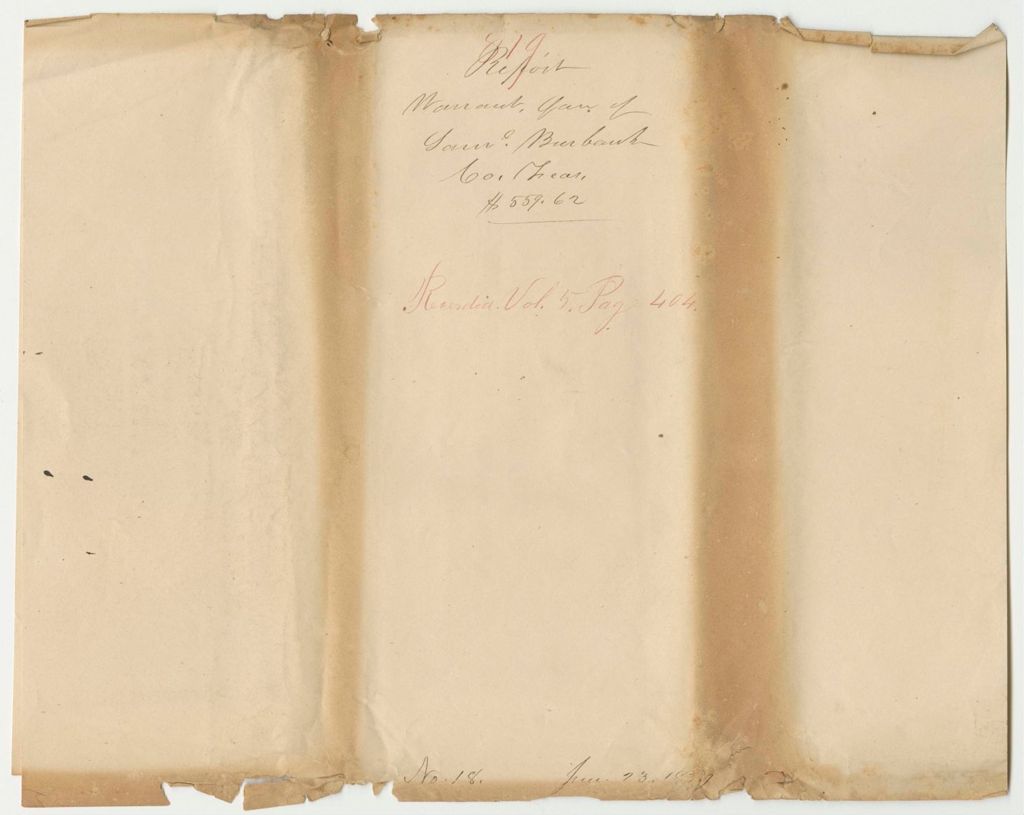 19
Report
Warrant, fav. of
Sam<sup>l</sup>. Burbank
Co. Treas.
$559.62
Recorded. Vol. 5. Page 404.
No. 18. 23. 18